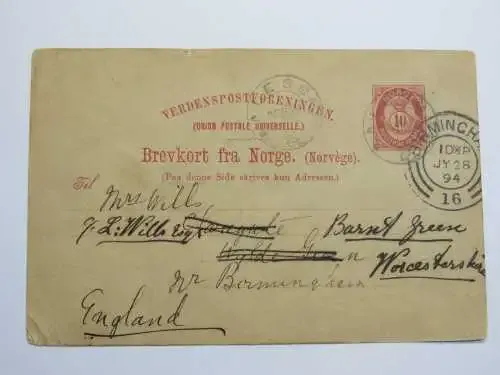 VERDENSPOSTFORENINGEN.
(UNION POSTALE UNIVERSELLE.)
Brevkort fra Norge. (Norvège).
(Paa denne Side skrives kun Adressen.)
10
BIRMINGHA
JY 28
94
16
Til
Mrs Wills
J. L. Wills Esq
Barnt Green
Wylde Green
Worcestershire
nr Birmingham
England